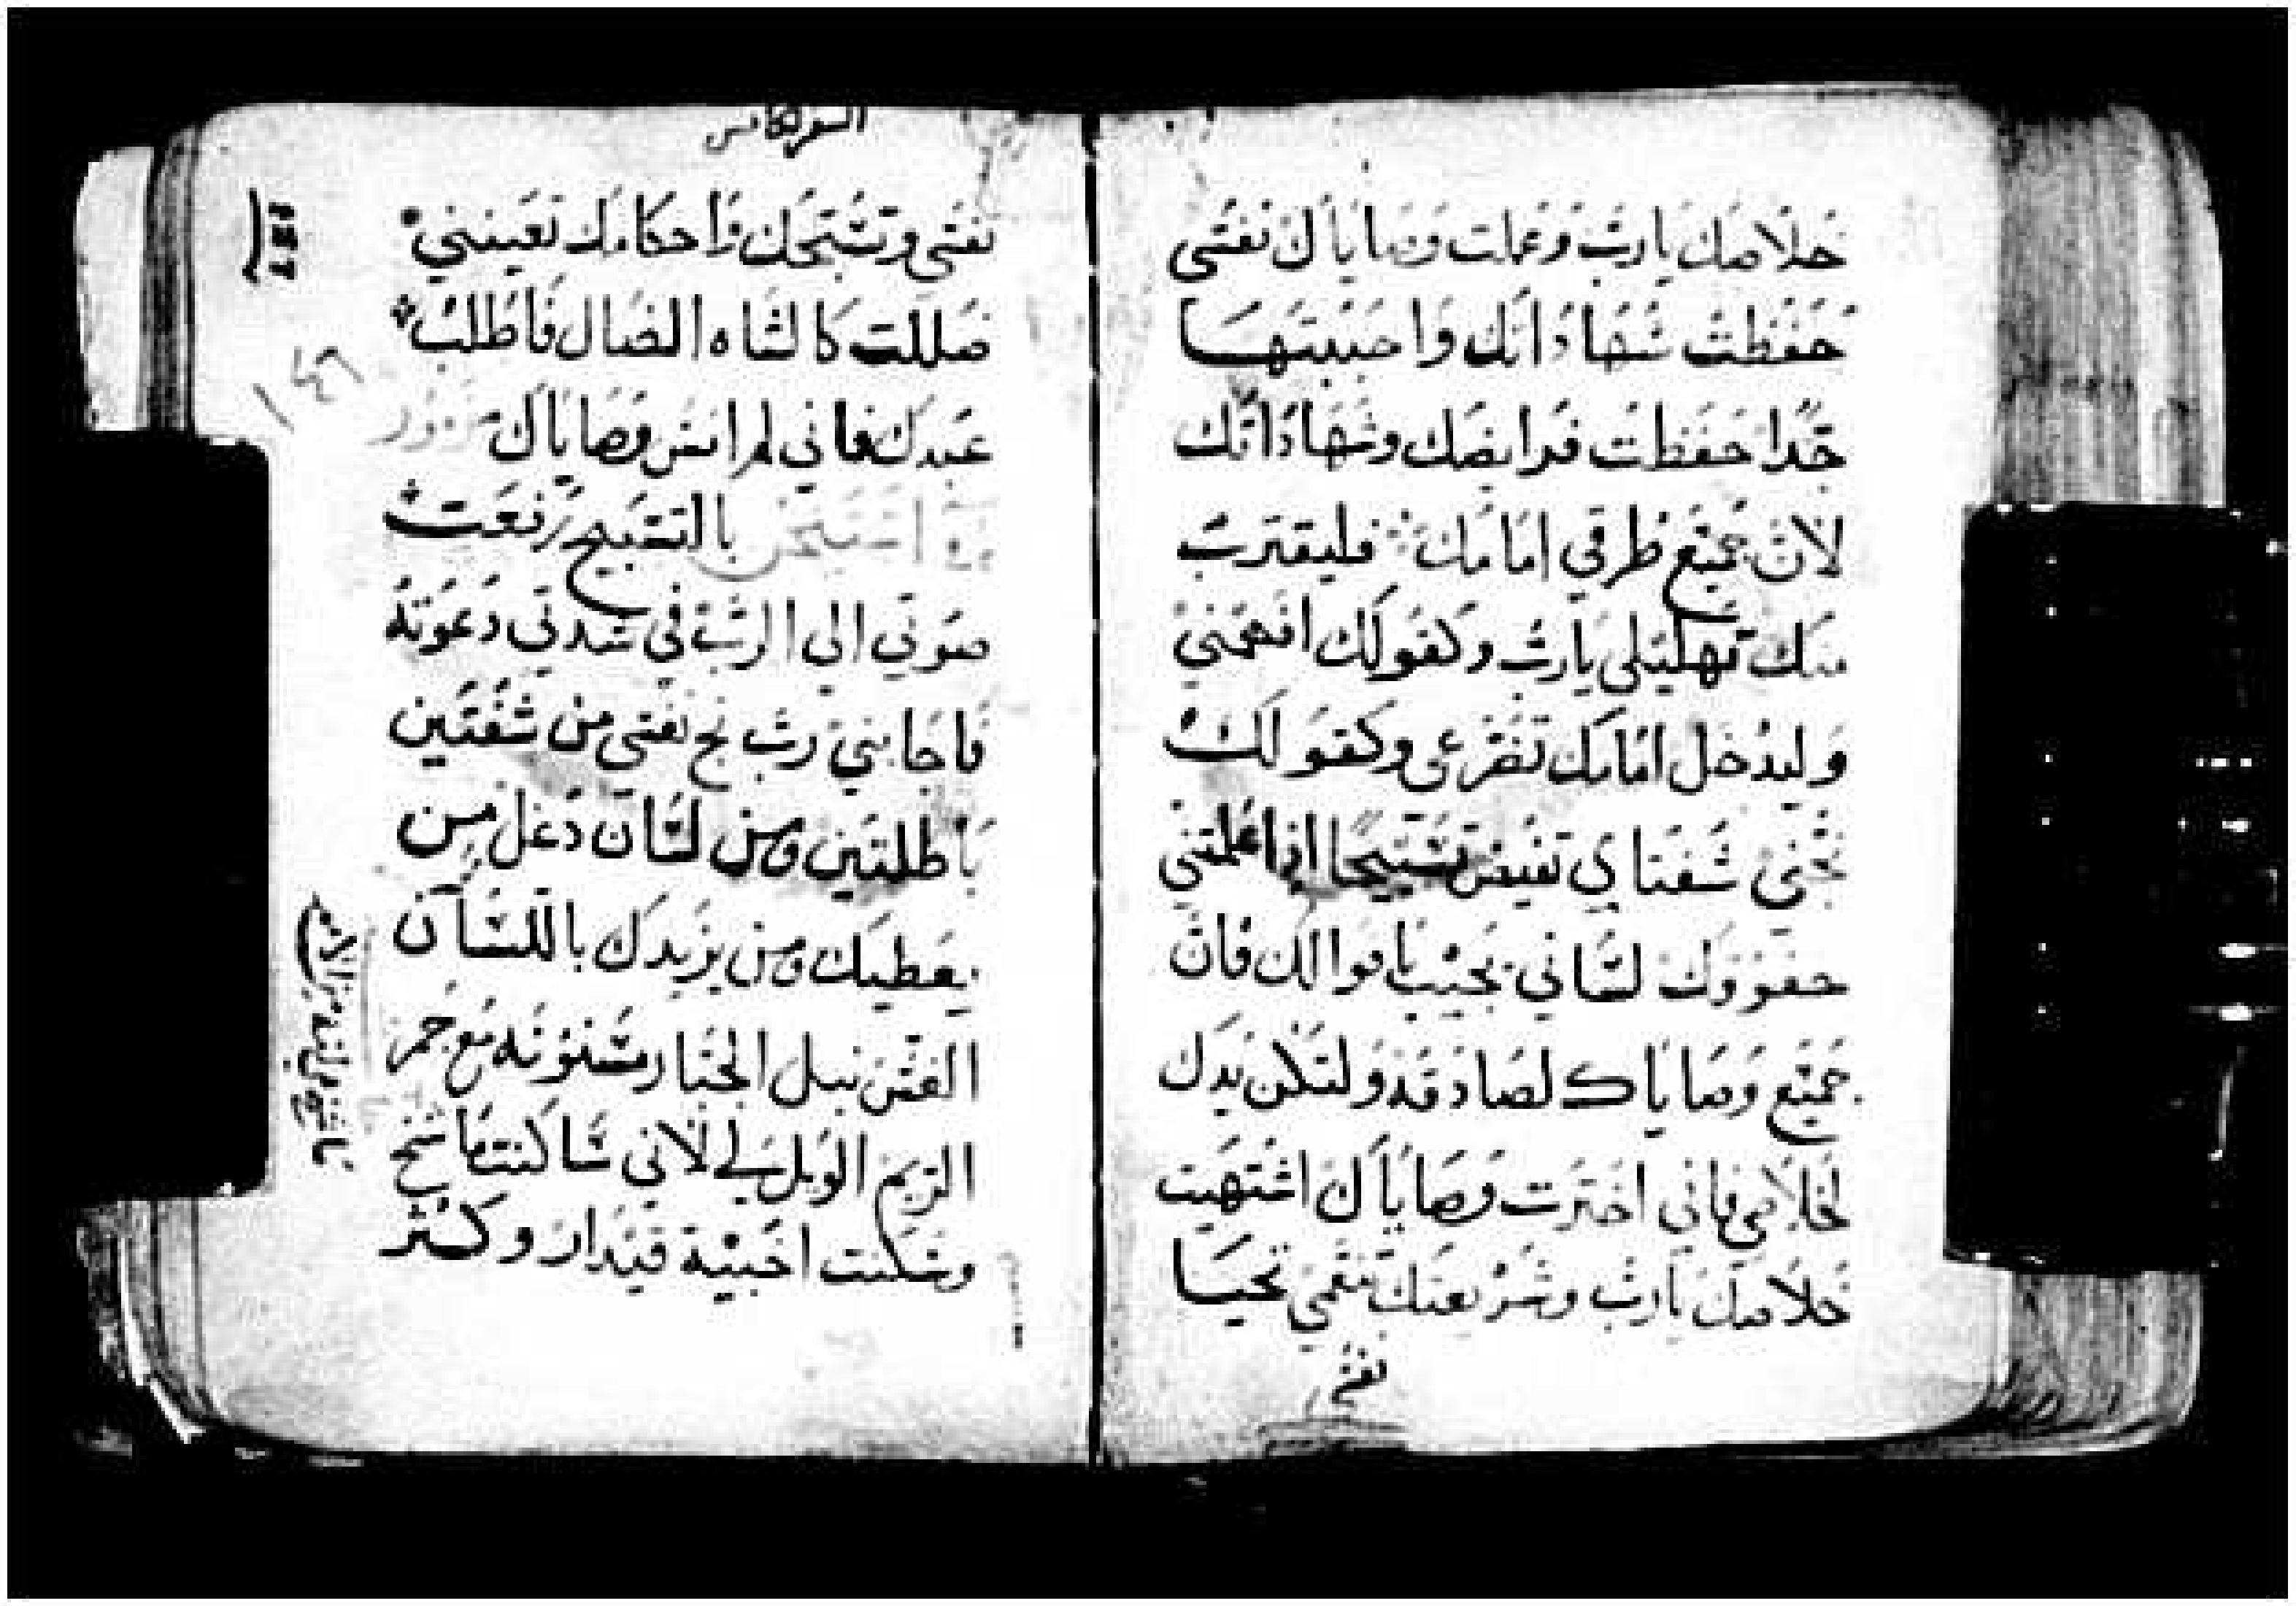 خلاصك يارب وعملت وصاياك نفسي
حفظت شهاداتك واحببتها
جدا حفظت فرايضك وشهاداتك
لان جميع طرقي امامك فليقترب
منك تهليلي يارب وكقولك افهمني
وليدخل امامك تضرعي وكقولك
نجني شفتاي تفيض تسبيحا اذا علمتني
حقوقك لساني يجيب باقوالك فان
جميع وصاياك لصادقه ولتكن يدك
لخلاصي فاني اخترت وصاياك اشتهيت
خلاصك يارب وشريعتك تنعمي تحيا
نفسي
نفسي وتسبحك واحكامك تعينني
ضللت كالشاه الضال فاطلب
عبدك فاني لم انس وصاياك مزمور
بالتسبيح رفعت
صوتي الى الرب في شدتي دعوته
فاجابني رب نج نفسي من شفتين
باطلتين ومن لسان دغل من
يعطيك ومن يزيدك باللسان
الغش نبل الجبار مسنونه مع جمر
الريم الويل لي لاني ساكنت ماشخ
وسكنت اخبية قيدار وكثر